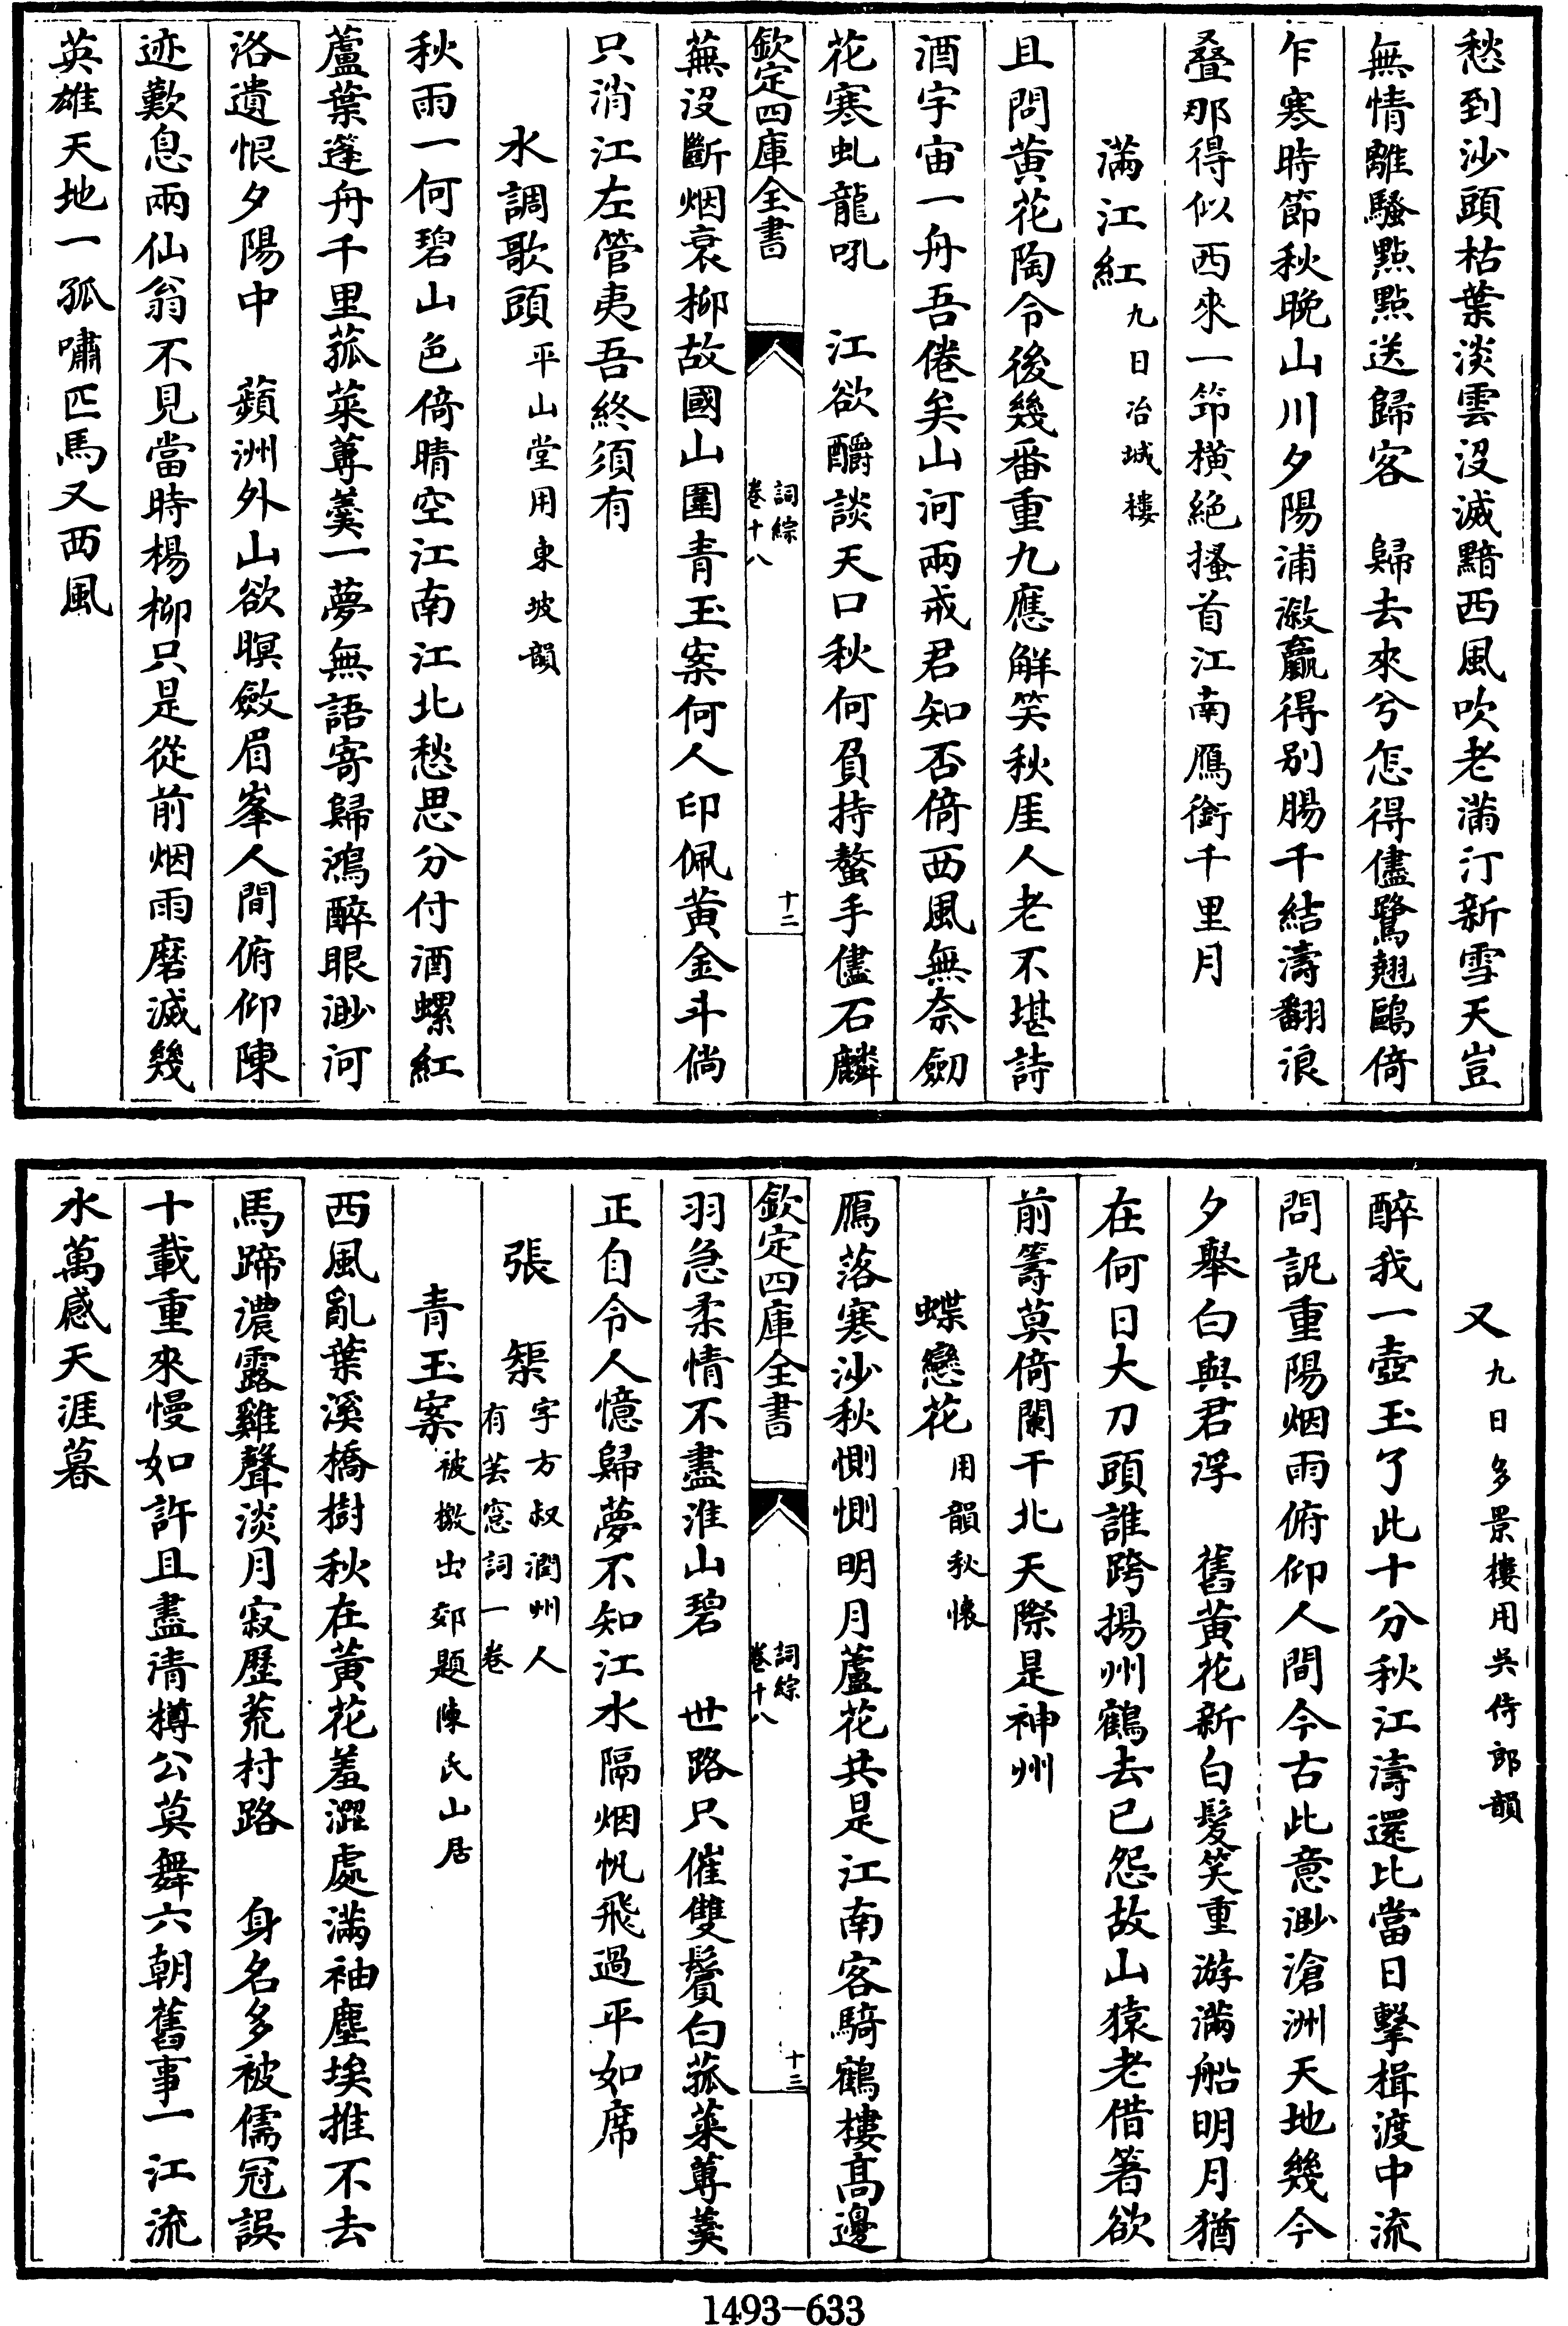 愁到沙頭枯葉淡雲没滅黯西風吹老滿汀新雪天豈
無情離騷㸃㸃送歸客　歸去來兮怎得儘鷺翹鷗倚
乍寒時節秋晚山川夕陽浦漵贏得别腸千結濤翻浪
叠那得似西來一笻横絶搔首江南鴈銜千里月
滿江紅九日冶城樓
且問黄花陶令後幾番重九應解笑秋厓人老不堪詩
酒宇宙一舟吾倦矣山河兩戒君知否倚西風無奈劒
花寒虬龍吼　江欲釂談天口秋何負持螯手儘石麟
欽定四庫全書
詞綜
卷十八
十二
蕪没斷烟衰柳故國山圍青玉案何人印佩黄金斗倘
只消江左管夷吾終須有
水調歌頭平山堂用東坡韻
秋雨一何碧山色倚晴空江南江北愁思分付酒螺紅
蘆葉蓬舟千里菰菜蓴羮一夢無語寄歸鴻醉眼渺河
洛遺恨夕陽中　蘋洲外山欲暝斂眉峯人間俯仰陳
迹歎息兩仙翁不見當時楊柳只是從前烟雨磨滅幾
英雄天地一孤嘯匹馬又西風
又九日多景樓用吳侍郎韻
醉我一壺玉了此十分秋江濤還比當日擊楫渡中流
問訊重陽烟雨俯仰人間今古此意渺滄洲天地幾今
夕舉白與君浮　舊黄花新白髪笑重游滿船明月猶
在何日大刀頭誰跨揚州鶴去已怨故山猿老借箸欲
前籌莫倚闌干北天際是神州
蝶戀花用韻秋懐
鴈落寒沙秋惻惻明月蘆花共是江南客騎鶴樓髙邊
欽定四庫全書
詞綜
卷十八
十三
羽急柔情不盡淮山碧　世路只催雙鬢白菰菜蓴羮
正自令人憶歸夢不知江水隔烟帆飛過平如席
張榘字方叔潤州人
有芸窓詞一卷
青玉案被檄出郊題陳氏山居
西風亂葉溪橋樹秋在黄花羞澀處滿袖塵埃推不去
馬蹄濃露雞聲淡月寂歷荒村路　身名多被儒冠誤
十載重來慢如許且盡清樽公莫舞六朝舊事一江流
水萬感天涯暮
1493-633